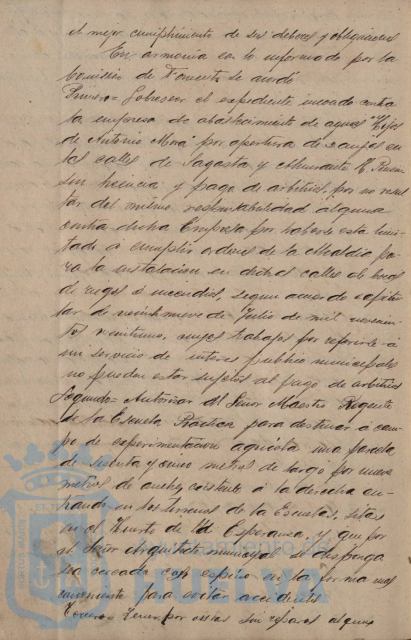 el mejor cumplimiento de sus deberes y obligaciones
En armonía con lo informado por la
Comisión de Fomento se acordó
Primero = Sobreseer el expediente incoado contra
la empresa de abastecimiento de aguas "Hijos
de Antonio Mora" por apertura de zanjas en
las calles de Sagasta y Almirante H. Pinzon
sin licencia y pago de arbitrios, por no resul
tar del mismo responsabilidad alguna
contra dicha Empresa por haberse esta limi
tado á cumplir ordenes de la Alcaldia pa
ra la instalacion en dichas calles de bocas
de riegos é incendios, segun acuerdo capitu
lar de veintinueve de Julio de mil novecien
tos veintiuno, cuyos trabajos por referirse á
un servicio de interes publico municipal
no pueden estar sujetos al pago de arbitrios
Segundo = Autorizar al Señor Maestro Regente
de la Escuela Practica para destinar á cam
po de experimentacion agricola una parcela
de treinta y cinco metros de largo por nueve
metros de ancho, existente á la derecha en
trando en los terrenos de la Escuelas, sitas
en el Huerto de la Esperanza, y que por
el Señor Arquitecto municipal se disponga
sea cercado con espino en la forma mas
conveniente para evitar accidentes
Tercero = Tener por vistas sin reparos alguno
HUELVA